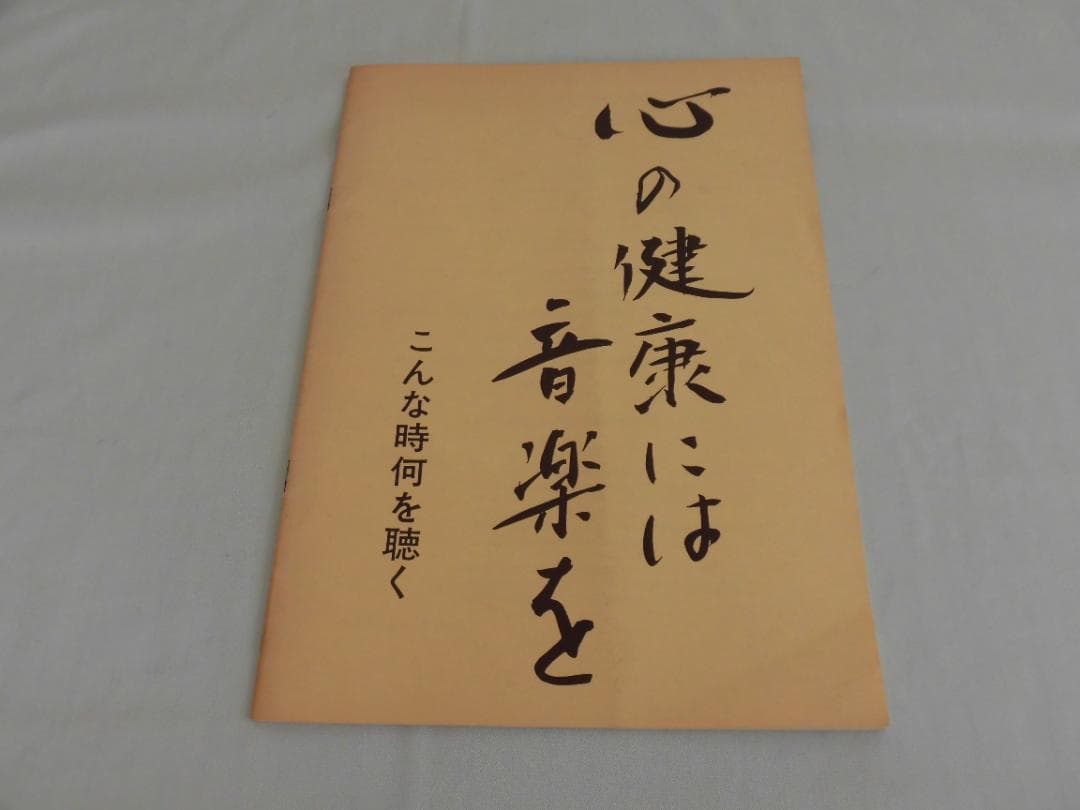 心の健康には
音楽を
こんな時何を聴く